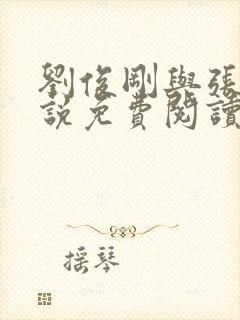 劉俊剛與張
説免費閱讀
摇琴